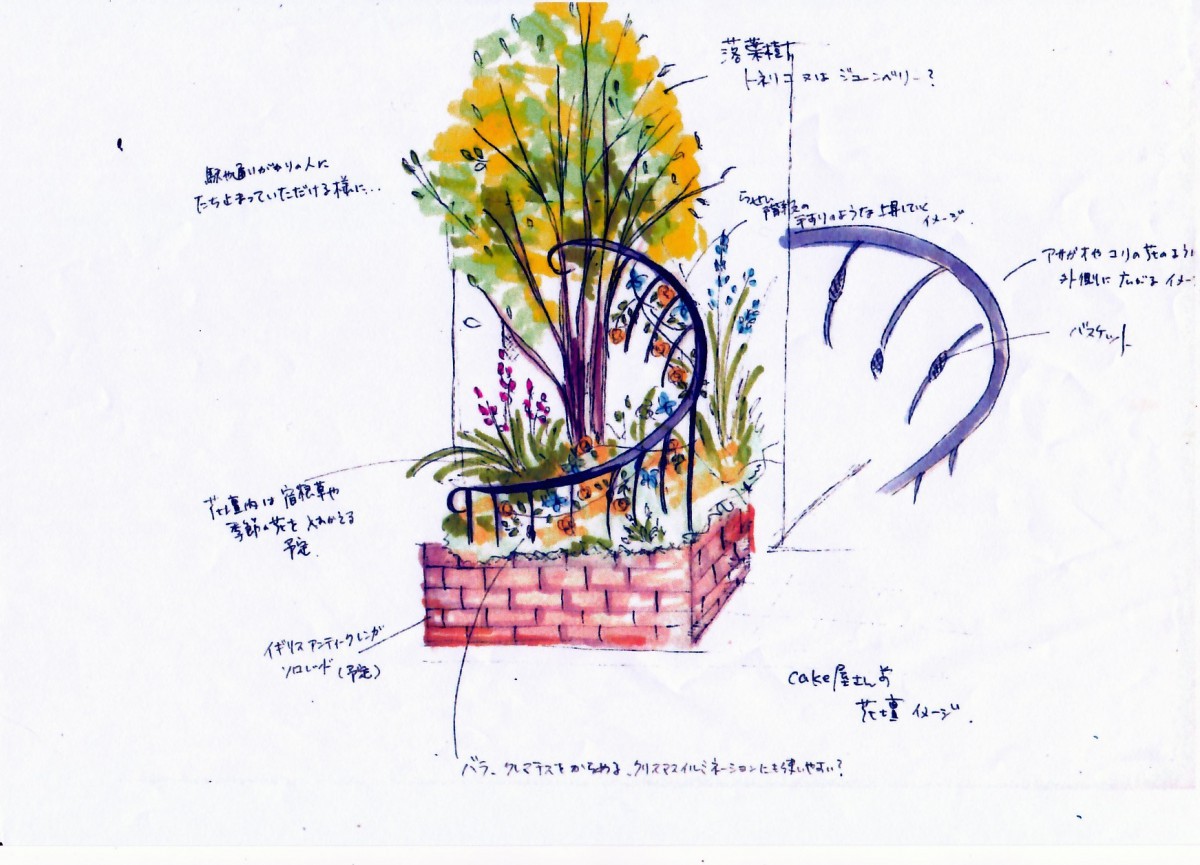 落葉樹
トネリコ 又は ジューンベリー？
駅や通りがかりの人に
たち止まっていただける様に…
らせん
階段の
手すりのような 上昇していく
イメージ．
アサガオや ユリの花のように
外側に 広がる イメー
バスケット
花壇内は 宿根草や
季節の花を 入れかえる
予定．
イギリスアンティークレンガ
ソロレッド（予定）
cake屋さん前
花壇 イメージ．
バラ、クレマチスをからめる、クリスマスイルミネーションにも使いやすい？